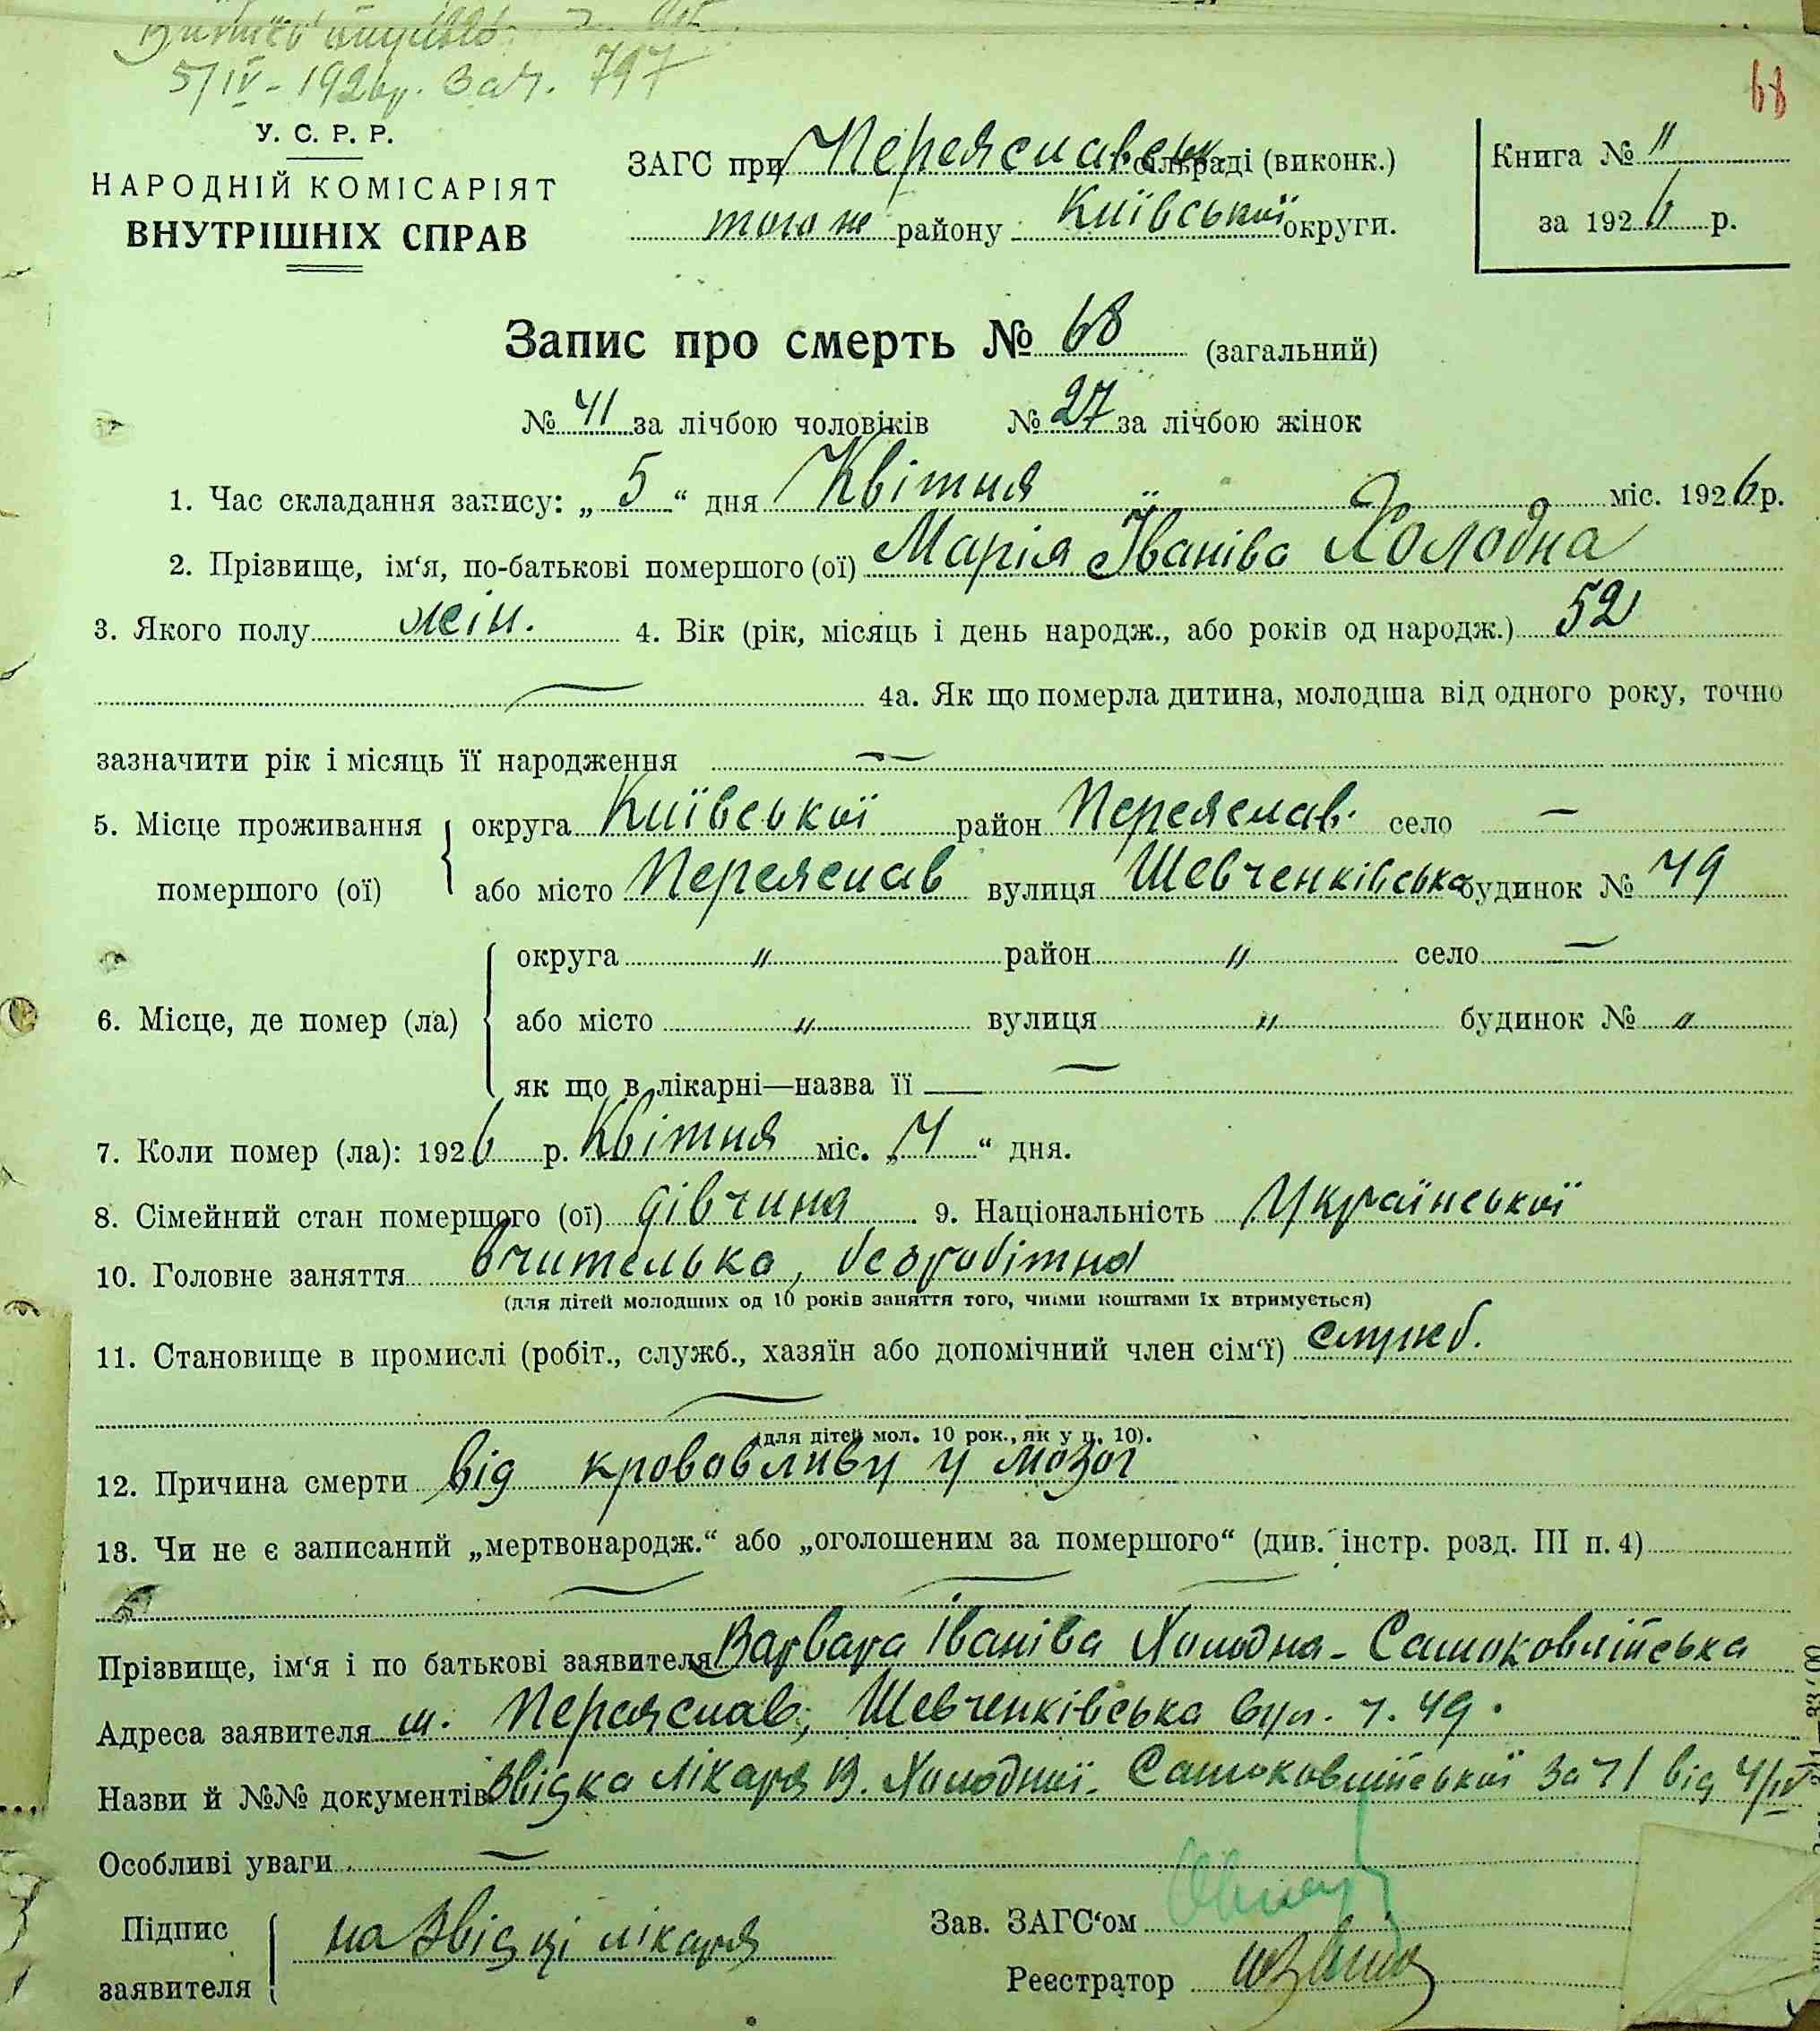 5/IV - 1926р. Зач. 797
68
У. С. Р. Р.
НАРОДНІЙ КОМІСАРІЯТ
ВНУТРІШНІХ СПРАВ
ЗАГС при Переяславськ. сільраді (виконк.)
того ж району Київської округи.
Книга № "
за 1926 р.
Запис про смерть № 68 (загальний)
№ 41 за лічбою чоловіків № 27 за лічбою жінок
1. Час складання запису: „ 5 “ дня Квітня міс. 1926 р.
2. Прізвище, ім‘я, по-батькові помершого (ої) Марія Іваніва Холодна
3. Якого полу жін. 4. Вік (рік, місяць і день народж., або років од народж.) 52
— 4а. Як що померла дитина, молодша від одного року, точно
зазначити рік і місяць її народження —
5. Місце проживання помершого (ої) { округа Київської район Переяслав. село —
або місто Переяслав вулиця Шевченківська будинок № 49
6. Місце, де помер (ла) { округа " район " село —
або місто " вулиця " будинок № "
як що в лікарні—назва її —
7. Коли помер (ла): 1926 р. Квітня міс. „ 4 “ дня.
8. Сімейний стан померщого (ої) дівчина 9. Національність Української
10. Головне заняття вчителька, безробітна
(для дітей молодших од 10 років заняття того, чиїми коштами їх втримується)
11. Становище в промислі (робіт., служб., хазяїн або допомічний член сім‘ї) служб.
—
(для дітей мол. 10 рок., як у п. 10).
12. Причина смерти від крововливу у мозог
13. Чи не є записаний „мертвонародж.“ або „оголошеним за помершого“ (див. інстр. розд. III п. 4)
— — —
Прізвище, ім‘я і по батькові заявителя Варвара Іваніва Холодна - Самоковлійська
Адреса заявителя м. Переяслав, Шевченківська вул. ч. 49.
Назви й №№ документів Звідка лікаря В. Холодної - Самоковлійської за ч 1 від 4/IV
Особливі уваги —
Підпис заявителя { на звідці лікаря
Зав. ЗАГС‘ом
Реєстратор